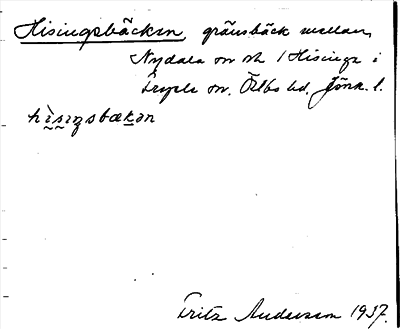 Hisingsbäcken, gränsbäck mellan
Nydala sn och 1 Hisinge i
sn. Östbo hd. Jönk. l.
hìsiŋsbækən
Fritz Andersson 1937.